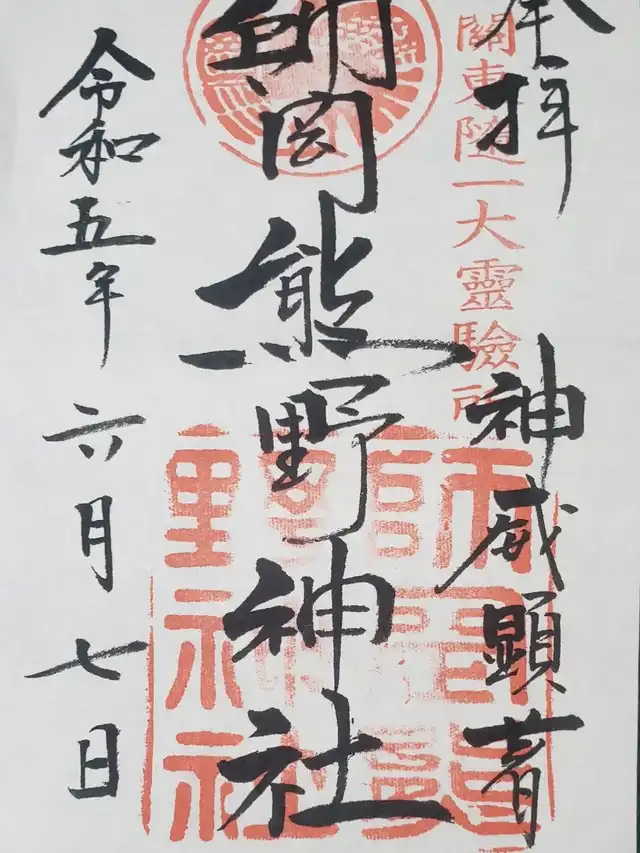 奉拝
關東随一大靈驗所
神威顕著
師岡熊野神社
令和五年六月七日